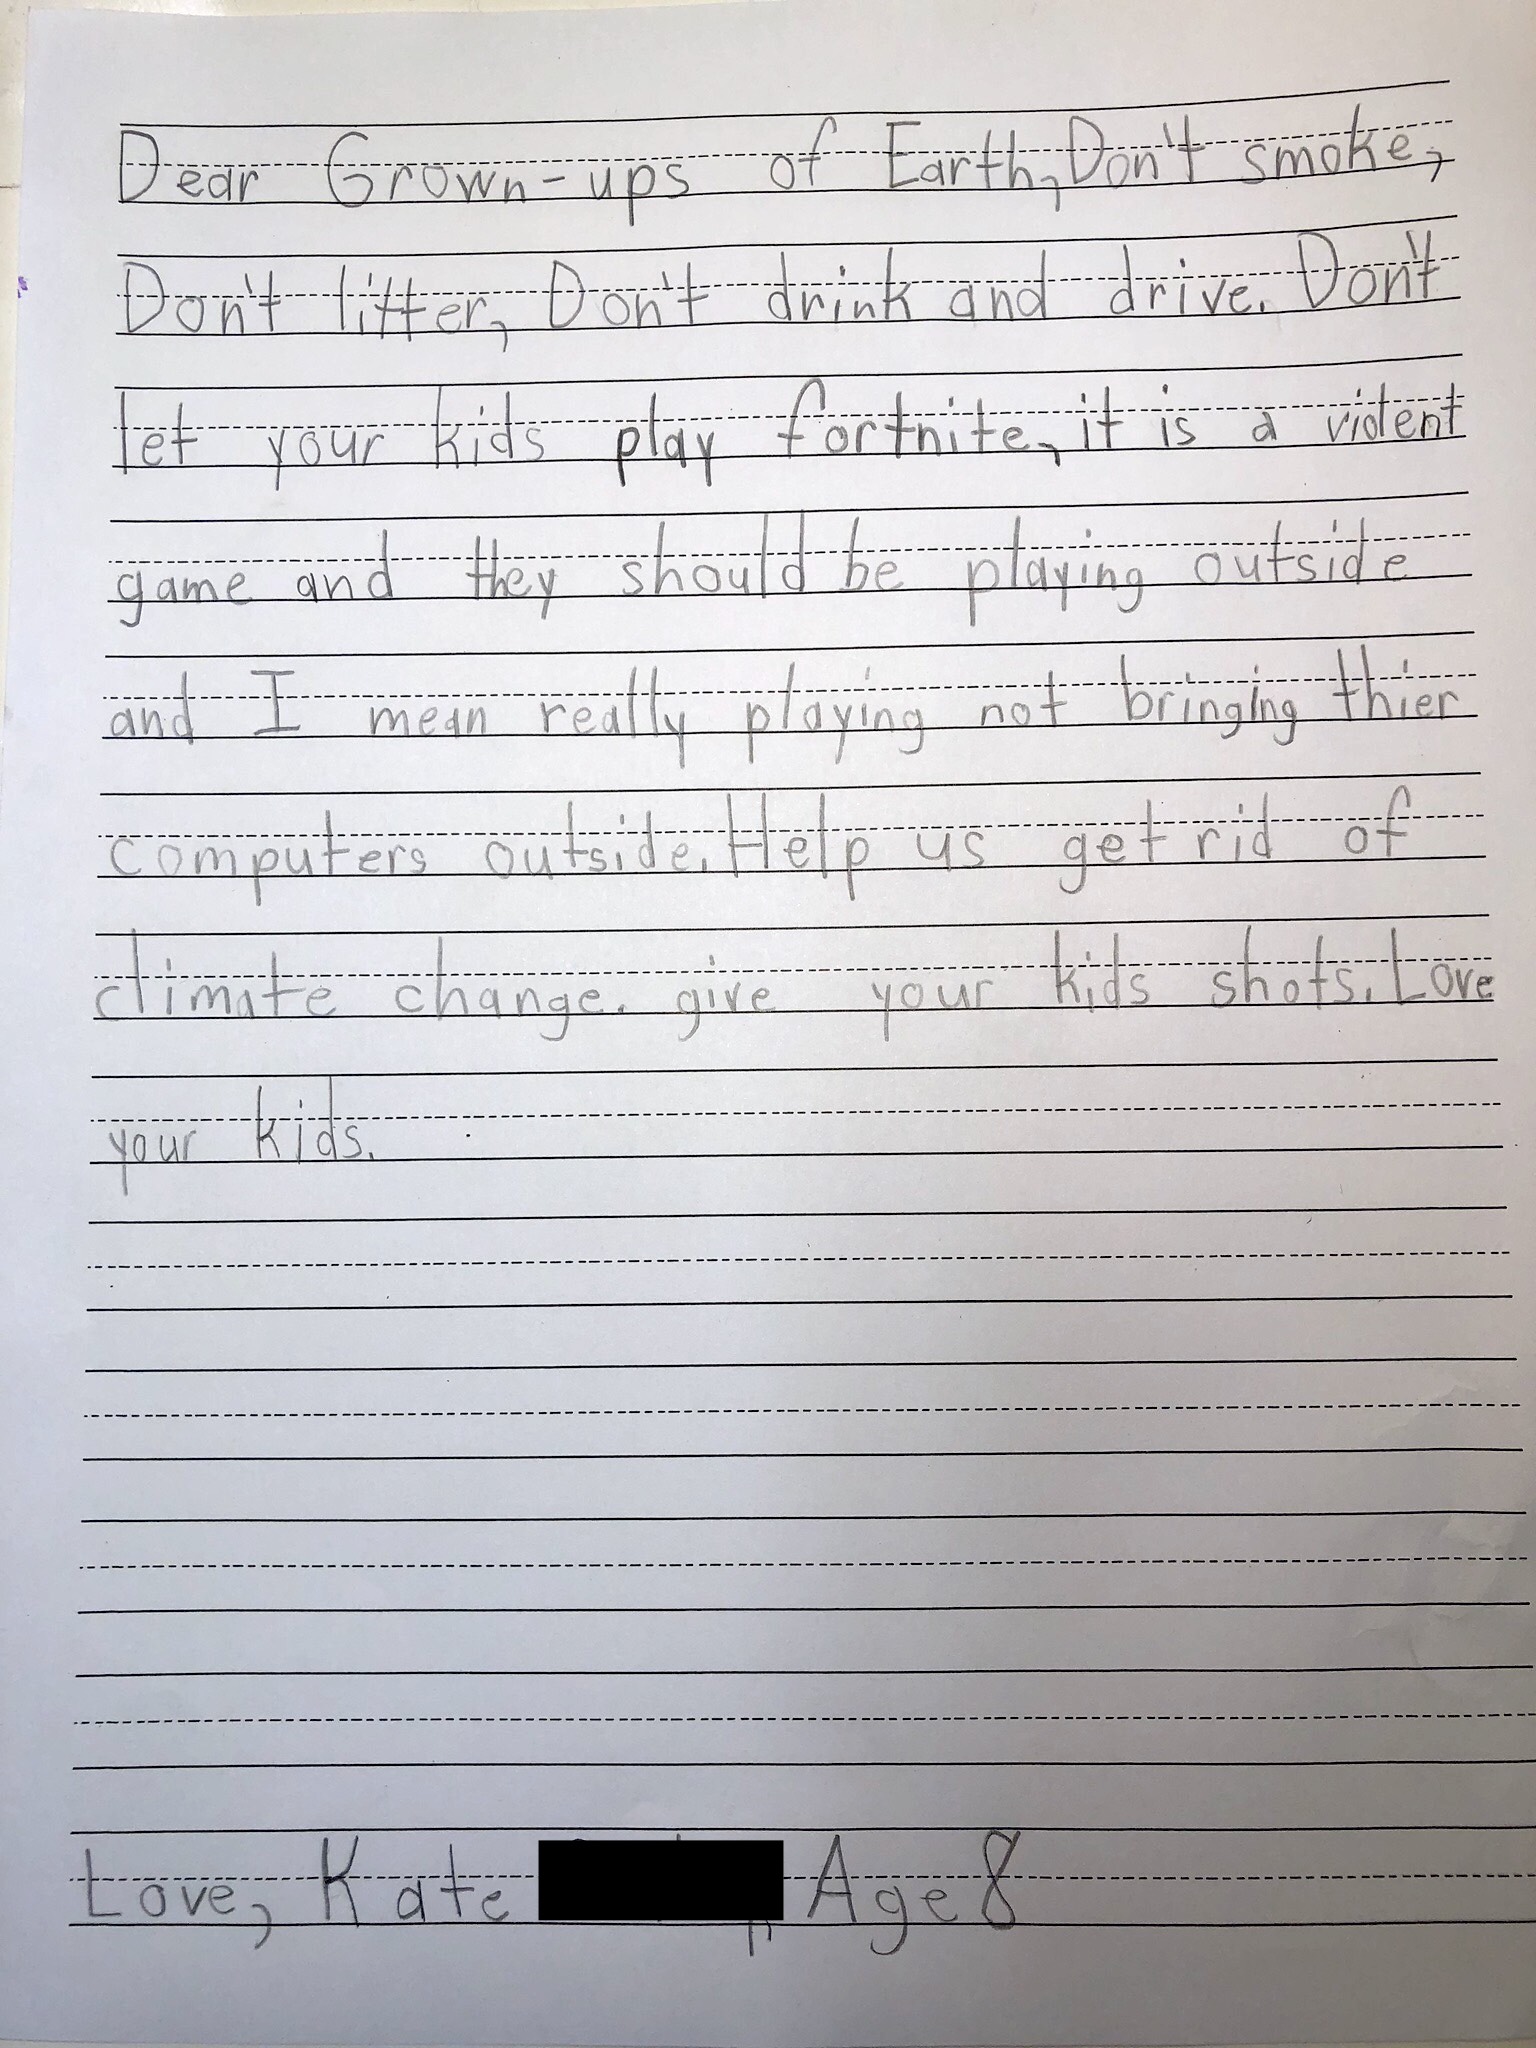 Dear Grown-ups of Earth, Don't smoke,
Don't litter, Don't drink and drive. Don't
let your kids play fortnite, it is a violent
game and they should be playing outside
and I mean really playing not bringing thier
computers outside. Help us get rid of
climate change. give your kids shots. Love
your kids.
Love, Kate Age 8